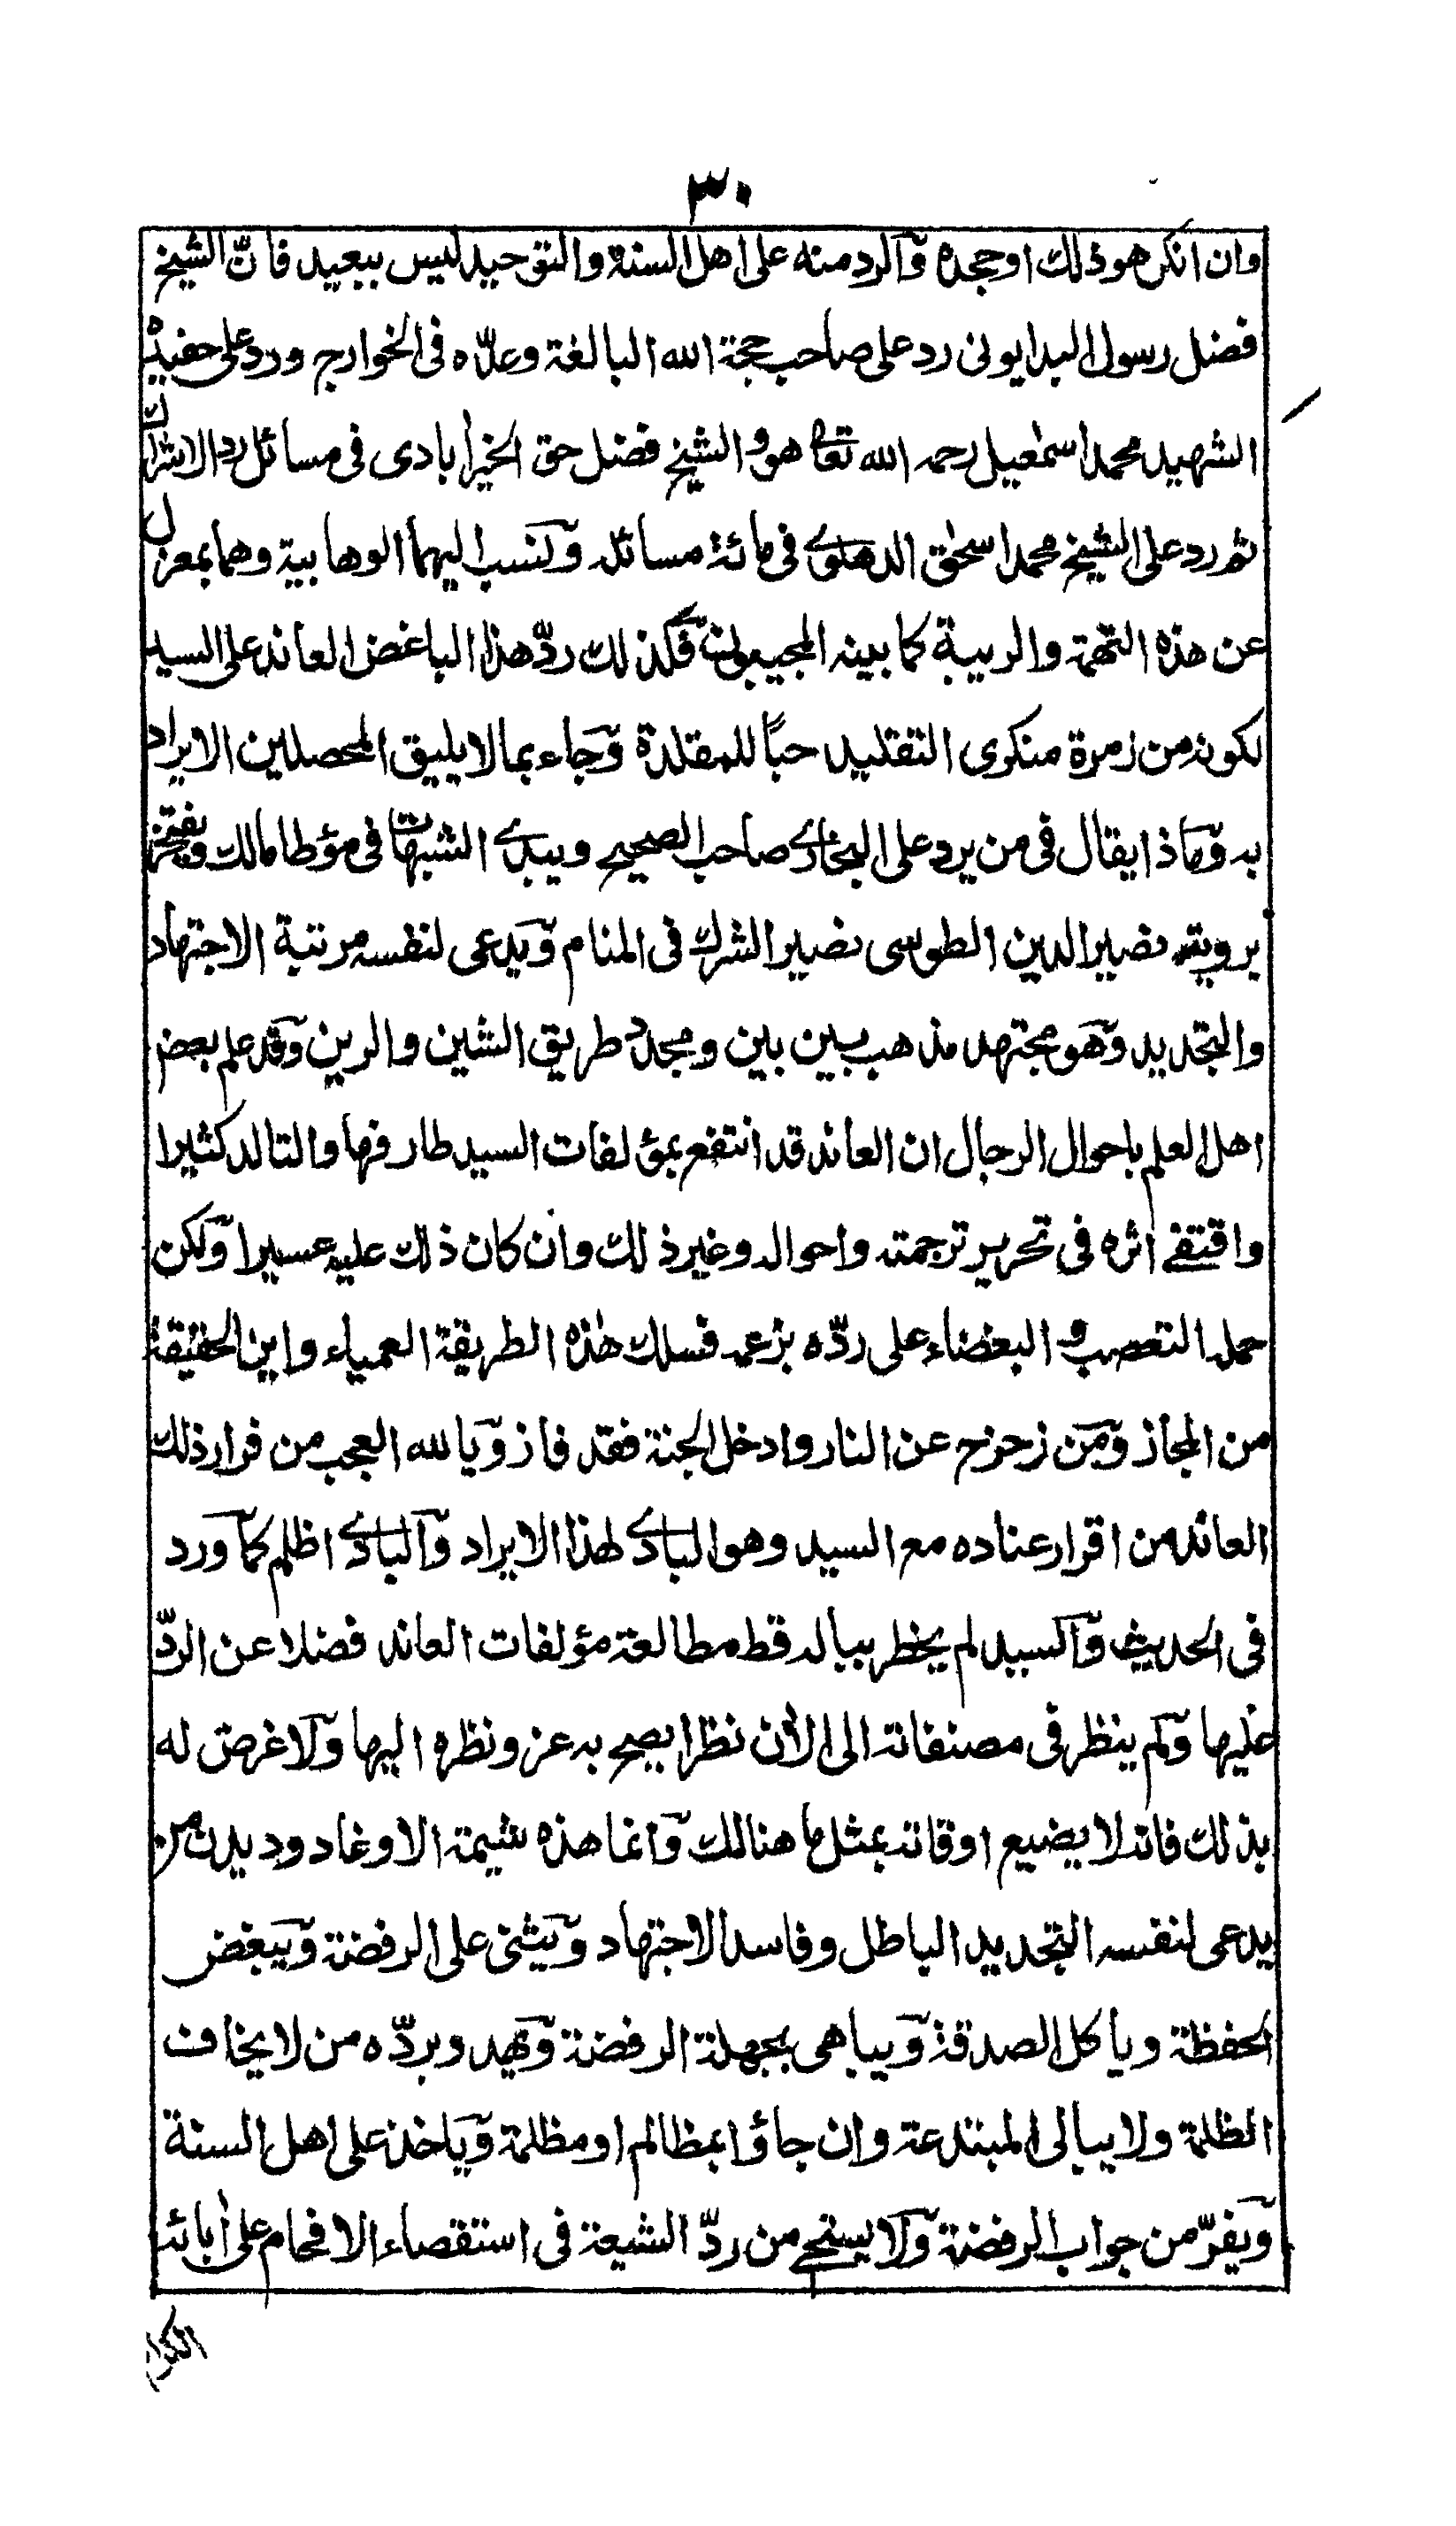 ٣٠
وان انكر هو ذلك او جحده والرد منه على اهل السنة والتوحيد ليس ببعيد فانّ الشيخ
فضل رسول البدايونى رد على صاحب حجة الله البالغة وعدّه فى الخوارج ورد على حفيده
الشهيد محمد اسمعيل رحمه الله تعالى هو والشيخ فضل حق الخيرابادى فى مسائل رد الاشراك
ثم رد على الشيخ محمد اسحق الدهلوى فى مائة مسائل ونسب اليهما الوهابية وهما بمعزل
عن هذه التهمة والريبة كما بينه المجيبون فكذلك ردّ هذا الباغض العاند على السيد
لكونه من زمرة منكرى التقليد حبًا للمقلدة وجاء بما لا يليق المحصلين الايراد
به وماذا يقال فى من يرد على البخارى صاحب الصحيح ويبدى الشبهات فى مؤطا مالك ويفتخر
برويته نصير الدين الطوسى نصير الشرك فى المنام ويدعى لنفسه مرتبة الاجتهاد
والتجديد وهو مجتهد مذهب بين بين ومجدد طريق الشين والرين وقد علم بعض
اهل العلم باحوال الرجال ان العاند قد انتفع بمؤلفات السيد طارفها والتالد كثيرا
واقتفى اثره فى تحرير ترجمته واحواله وغير ذلك وان كان ذلك عليه عسيرا ولكن
حمله التعصب والبغضاء على ردّه بزعمه فسلك هذه الطريقة العمياء واين الحقيقة
من المجاز ومن زحزح عن النار وادخل الجنة فقد فاز ويالله العجب من فرار ذلك
العاند من اقرار عناده مع السيد وهو البادى لهذا الايراد والبادى اظلم كما ورد
فى الحديث والسيد لم يخطر بباله قط مطالعة مؤلفات العاند فضلا عن الردّ
عليها ولم ينظر فى مصنفاته الى الأن نظرا يصح به عزو نظره اليها ولا غرض له
بذلك فانه لا يضيع اوقاته بمثل ما هنالك وانما هذه شيمة الاوغاد وديدن من
يدعى لنفسه التجديد الباطل وفاسد الاجتهاد ويثنى على الرفضة ويبغض
الحفظة وياكل الصدقة ويباهى بجهلة الرفضة ويهدد بردّه من لا يخاف
الظلمة ولا يبالى المبتدعة وان جاؤا بمظالم او مظلمة وياخذ على اهل السنة
ويفرّ من جواب الرفضة ولا يستحى من ردّ الشيعة فى استقصاء الافحام على أبائه
الكرام